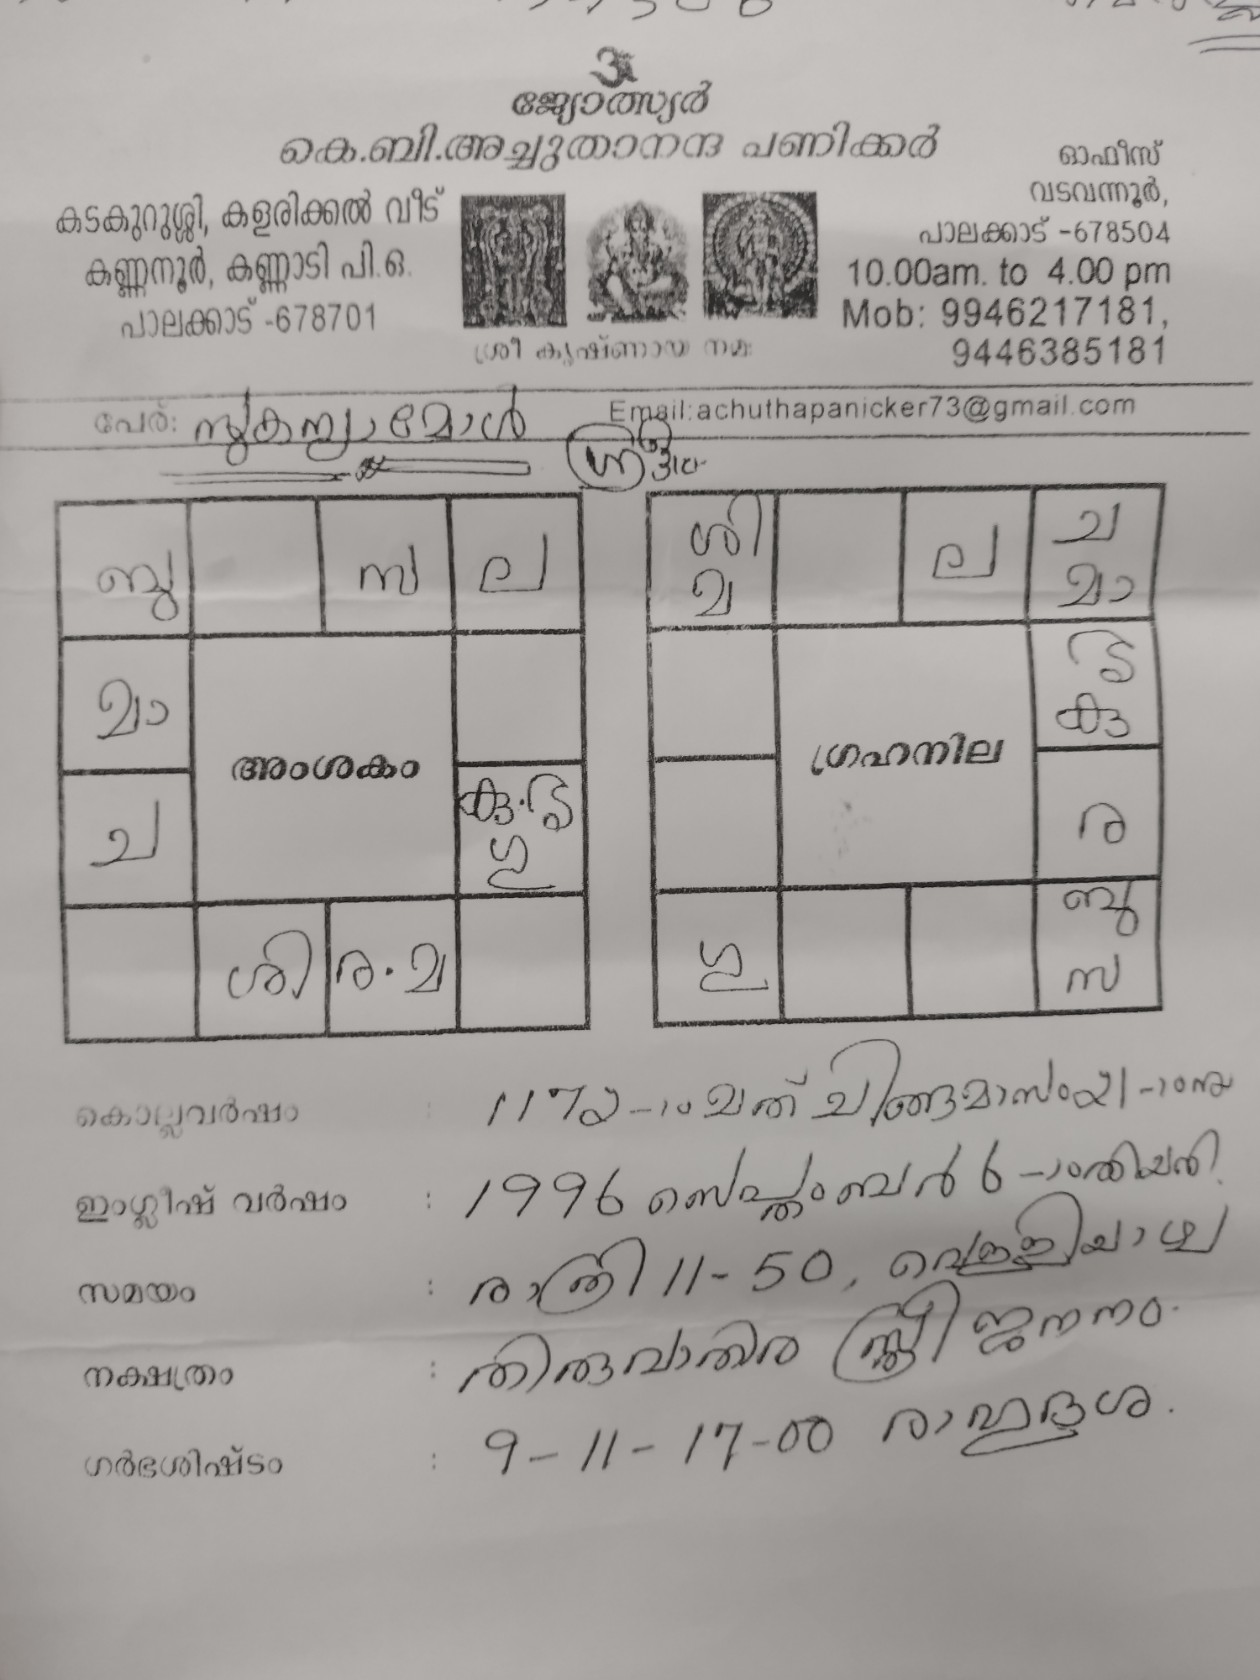 ജ്യോത്സ്യർ
കെ.ബി.അച്ചുതാനന്ദ പണിക്കർ
കടകുറുശ്ശി, കളരിക്കൽ വീട്
കണ്ണനൂർ, കണ്ണാടി പി.ഒ.
പാലക്കാട് -678701
ശ്രീ കൃഷ്ണായ നമഃ
ഓഫീസ്
വടവന്നൂർ,
പാലക്കാട് -678504
10.00am. to 4.00 pm
Mob: 9946217181,
9446385181
പേര്: സുകന്യാമോൾ
Email:achuthapanicker73@gmail.com
ബു സ ല
മാ
അംശകം
കു.ശു
ച ഗു
ശി ര.മ
ശി ല ച
മ മാ
ശു
കു
ഗ്രഹനില
ര
ബു
ഗു സ
കൊല്ലവർഷം : 1172-ാമത് ചിങ്ങമാസം 21-ാംനു
ഇംഗ്ലീഷ് വർഷം : 1996 സെപ്തംബർ 6-ാംതിയതി
സമയം : രാത്രി 11-50, വെള്ളിയാഴ്ച
നക്ഷത്രം : തിരുവാതിര സ്ത്രീ ജനനം.
ഗർഭശിഷ്ടം : 9-11-17-00 രാഹുദശ.